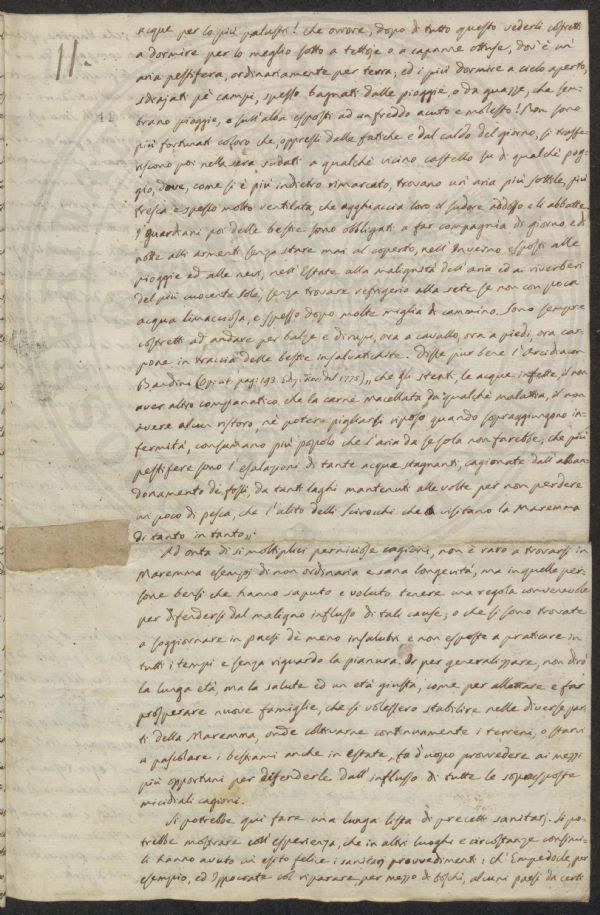 11.
acque per lo più palustri! che orrore, dopo di tutto questo vederli costretti
a dormire per lo meglio sotto a tettoje o a capanne ottuse, dov'è un'
aria pestifera, ordinariamente per terra; ed i più dormire a cielo aperto,
sdrajati pè campi, spesso bagnati dalle pioggie, o da guazze, che sem-
brano pioggie, e sull'alba esposti ad un freddo acuto e molesto! Non sono
più fortunati coloro che, oppressi dalle fatiche e dal caldo del giorno, si trasfe-
riscono poi nella sera sudati a qualche vicino castello su di qualche pog-
gio, dove, come si è più indietro rimarcato, trovano un'aria più sottile, più
fresca e spesso molto ventilata, che agghiaccia loro il sudore addosso e li abbatte.
I guardiani poi delle bestie sono obbligati a far compagnia di giorno e di
notte alli armenti senza stare mai al coperto, nell'Inverno esposti alle
pioggie ed alle nevi, nell'Estate alla malignità dell'aria ed ai riverberi
del più cuocente sole, senza trovare refrigerio alla sete se non con poca
acqua limacciosa, e spesso dopo molte miglia di cammino. Sono sempre
costretti ad andare per balze e dirupi, ora a cavallo, ora a piedi, ora car-
pone in traccia delle bestie insalvatichite. Disse pur bene l'Arcidiacon
Bandini (Op. cit. pag. 193. Ediz. del 1775) „ che gli stenti, le acque infette, il non
aver altro companatico che la carne macellata da qualche malattia, il non
avere alcun ristoro, nè potere pigliarsi riposo quando sopraggiungono in-
fermità, consumano più popolo che l'aria da se sola non farebbe; che più
pestifere sono l'esalazioni di tante acque stagnanti, cagionate dall'abban-
donamento dè fossi, da tanti laghi mantenuti alle volte per non perdere
un poco di pesca, che l'alito delli Scirocchi che visitano la Maremma
di tanto in tanto„.
Ad onta di sì moltiplici perniciose cagioni, non è raro a trovarsi in
Maremma esempj di non ordinaria e sana longevità, ma in quelle per-
sone bensì che hanno saputo e voluto tenere una regola convenevole
per difendersi dal maligno influsso di tali cause, o che si sono trovate
a soggiornare in paesi dè meno insalubri e non esposte a praticare in
tutti i tempi e senza riguardo la pianura. Or per generalizzare, non dirò
la lunga età, ma la salute ed un età giusta, come per allettare e far
prosperare nuove famiglie, che si volessero stabilire nelle diverse par-
ti della Maremma, onde coltivarne continuamente i terreni, o starvi
a pascolare i bestiami anche in estate, fa d'uopo provvedere ai mezzi
più opportuni per difenderle dall'influsso di tutte le sopraesposte
micidiali cagioni.
Si potrebbe qui fare una lunga lista di precetti sanitarj. Si po-
trebbe mostrare coll'esperienza, che in altri luoghi e circostanze consimi-
li hanno avuto un esito felice i sanitarj provvedimenti: ch'Empedocle per
esempio, ed Ippocrate col riparare, per mezzo di boschi, alcuni paesi da certi